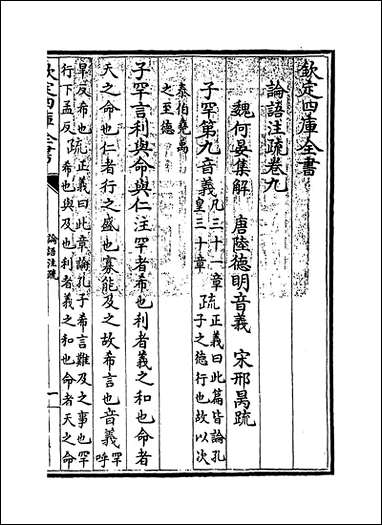 欽定四庫全書
論語注疏卷九
魏何晏集解　唐陸德明音義　宋邢昺疏
子罕第九音義凡三十一章皇三十章疏正義曰此篇皆論孔子之德行也故以次
泰伯堯禹之至德
子罕言利與命與仁注罕者希也利者義之和也命者
天之命也仁者行之盛也寡能及之故希言也音義罕呼
旱反希也行下孟反疏正義曰此章論孔子希言難及之事也罕希也與及也利者義之和也命者天之命
欽定四庫全書
論語注疏
一